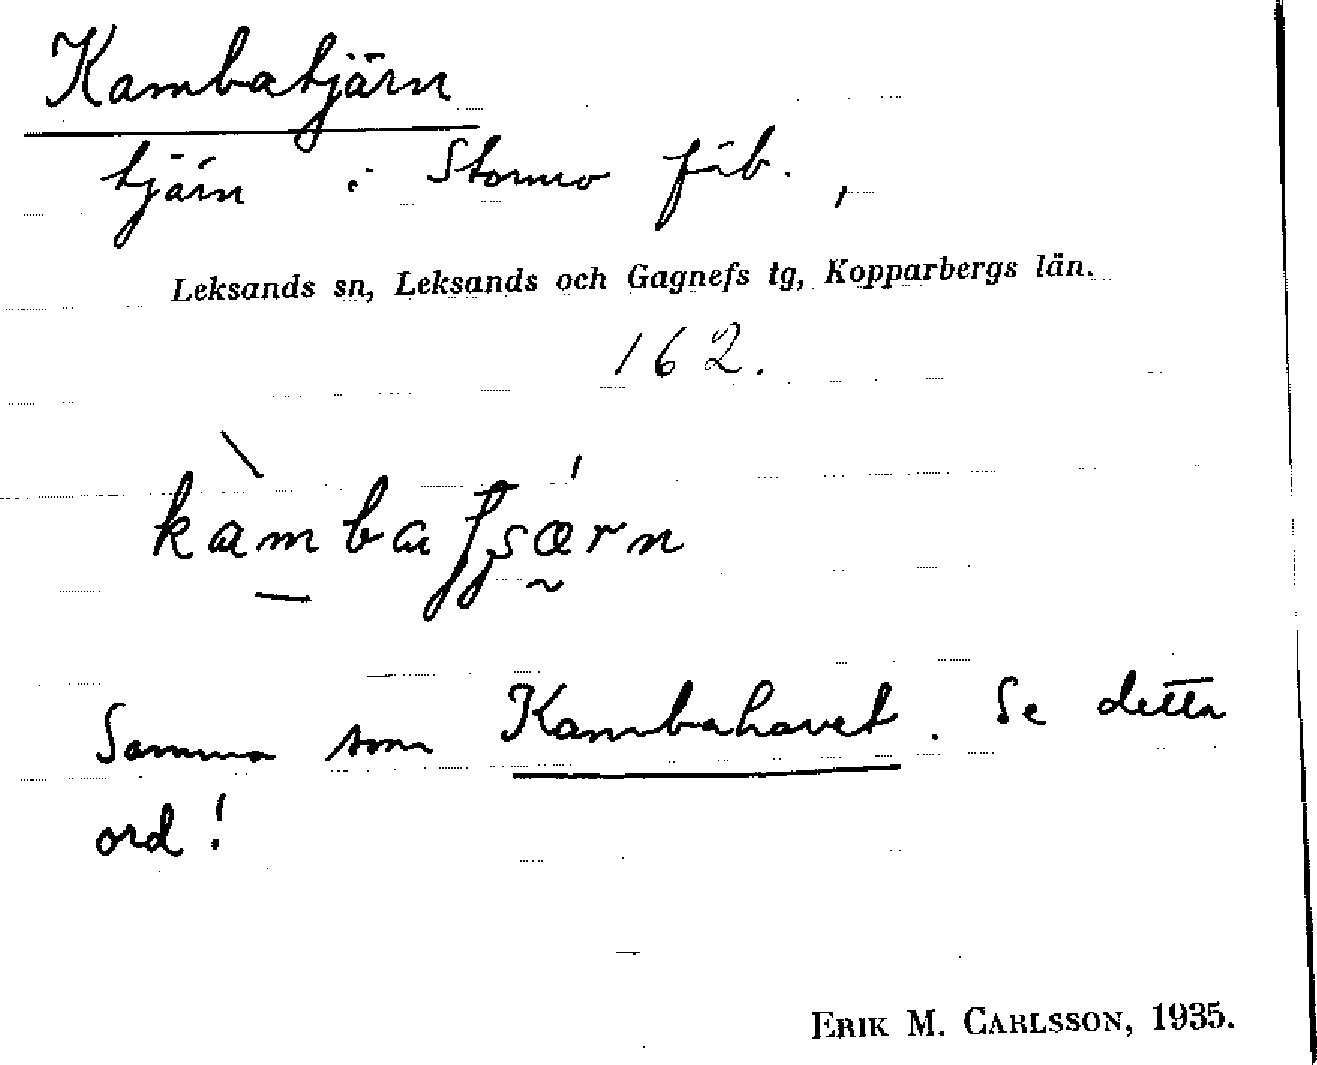 Kambatjärn
tjärn i Stormo fäb.,
Leksands sn, Leksands och Gagnefs tg, Kopparbergs län.
162.
Samma som Kambahavet. Se detta
ord!
ERIK M. CARLSSON, 1935.